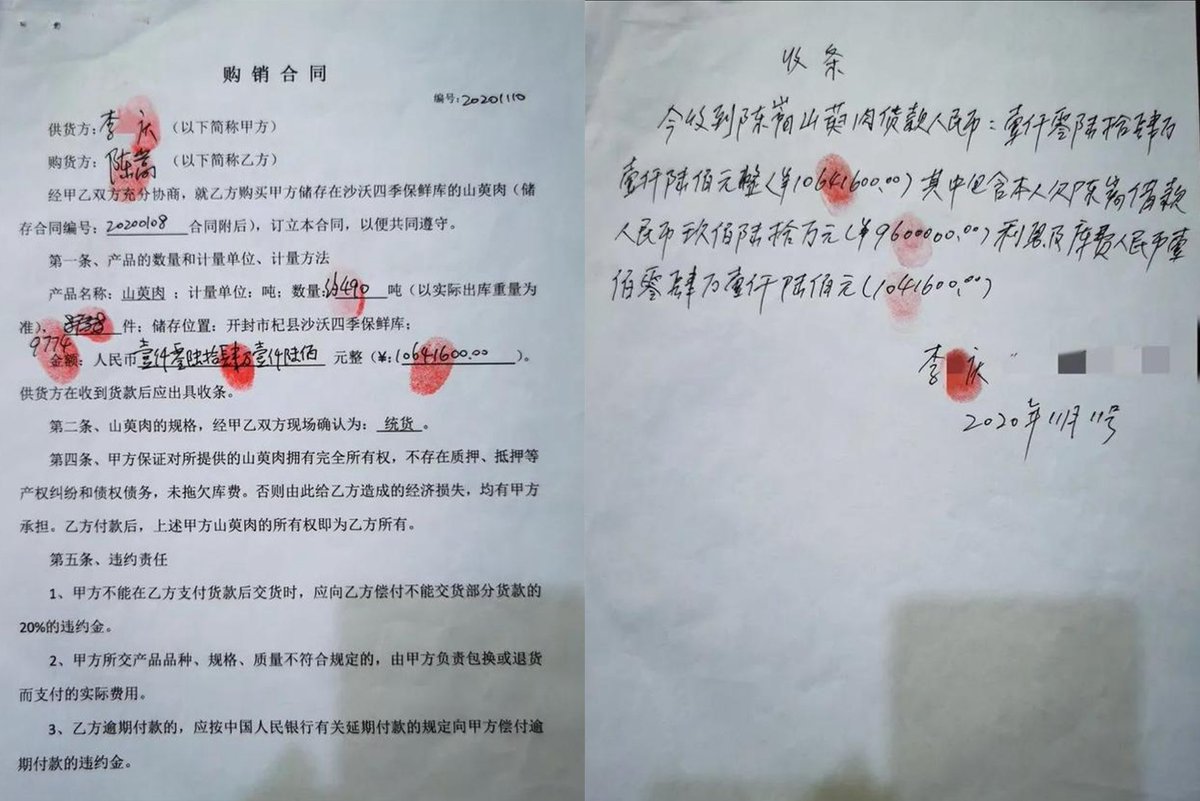 购销合同
编号:20201110
供货方:李庆（以下简称甲方）
购货方:陈嵩（以下简称乙方）
经甲乙双方充分协商，就乙方购买甲方储存在沙沃四季保鲜库的山萸肉（储
存合同编号:20200108合同附后），订立本合同，以便共同遵守。
第一条、产品的数量和计量单位、计量方法
产品名称:山萸肉；计量单位:吨；数量:约490吨（以实际出库重量为
准），件；储存位置:开封市杞县沙沃四季保鲜库；
9774
金额:人民币壹仟零陆拾肆万壹仟陆佰元整（¥:10641600.00）。
供货方在收到货款后应出具收条。
第二条、山萸肉的规格，经甲乙双方现场确认为:统货。
第四条、甲方保证对所提供的山萸肉拥有完全所有权，不存在质押、抵押等
产权纠纷和债权债务，未拖欠库费。否则由此给乙方造成的经济损失，均有甲方
承担。乙方付款后，上述甲方山萸肉的所有权即为乙方所有。
第五条、违约责任
1、甲方不能在乙方支付货款后交货时，应向乙方偿付不能交货部分货款的
20%的违约金。
2、甲方所交产品品种、规格、质量不符合规定的，由甲方负责包换或退货
而支付的实际费用。
3、乙方逾期付款的，应按中国人民银行有关延期付款的规定向甲方偿付逾
期付款的违约金。
收条
今收到陈嵩山萸肉货款人民币：壹仟零陆拾肆万
壹仟陆佰元整（¥10641600.00）其中包含本人欠陈嵩借款
人民币玖佰陆拾万元（¥9600000.00）利息及库费人民币壹
佰零肆万壹仟陆佰元（1041600.00）
李庆
2020年11月11号